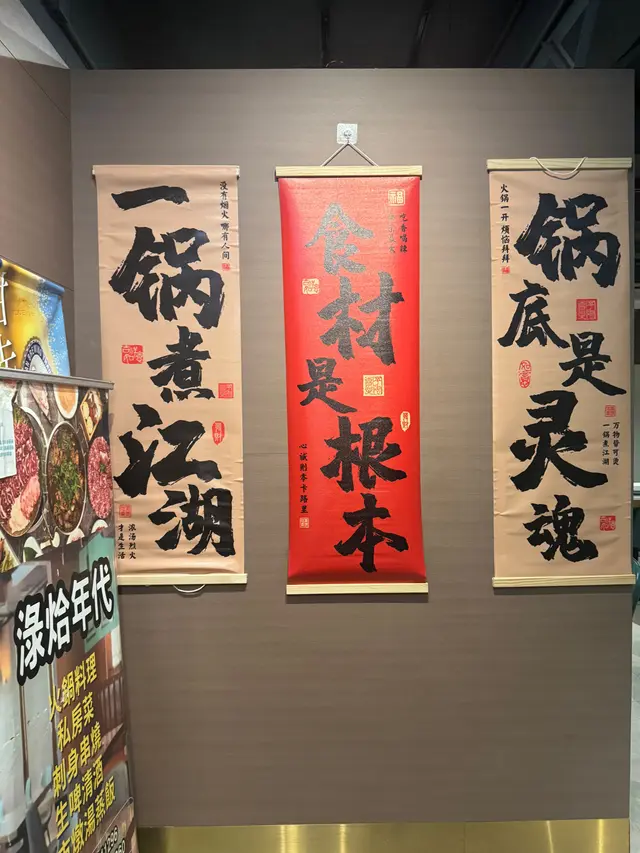 一锅煮江湖
没有烟火 哪有人间
浓汤烈火
才是生活
食材是根本
吃香喝辣
锅底是灵魂
火锅一开 烦恼拜拜
万物皆可烫
一锅煮江湖
淥焰年代
火鍋料理
私房菜
刺身串燒
生啤清酒
燉湯蒸飯